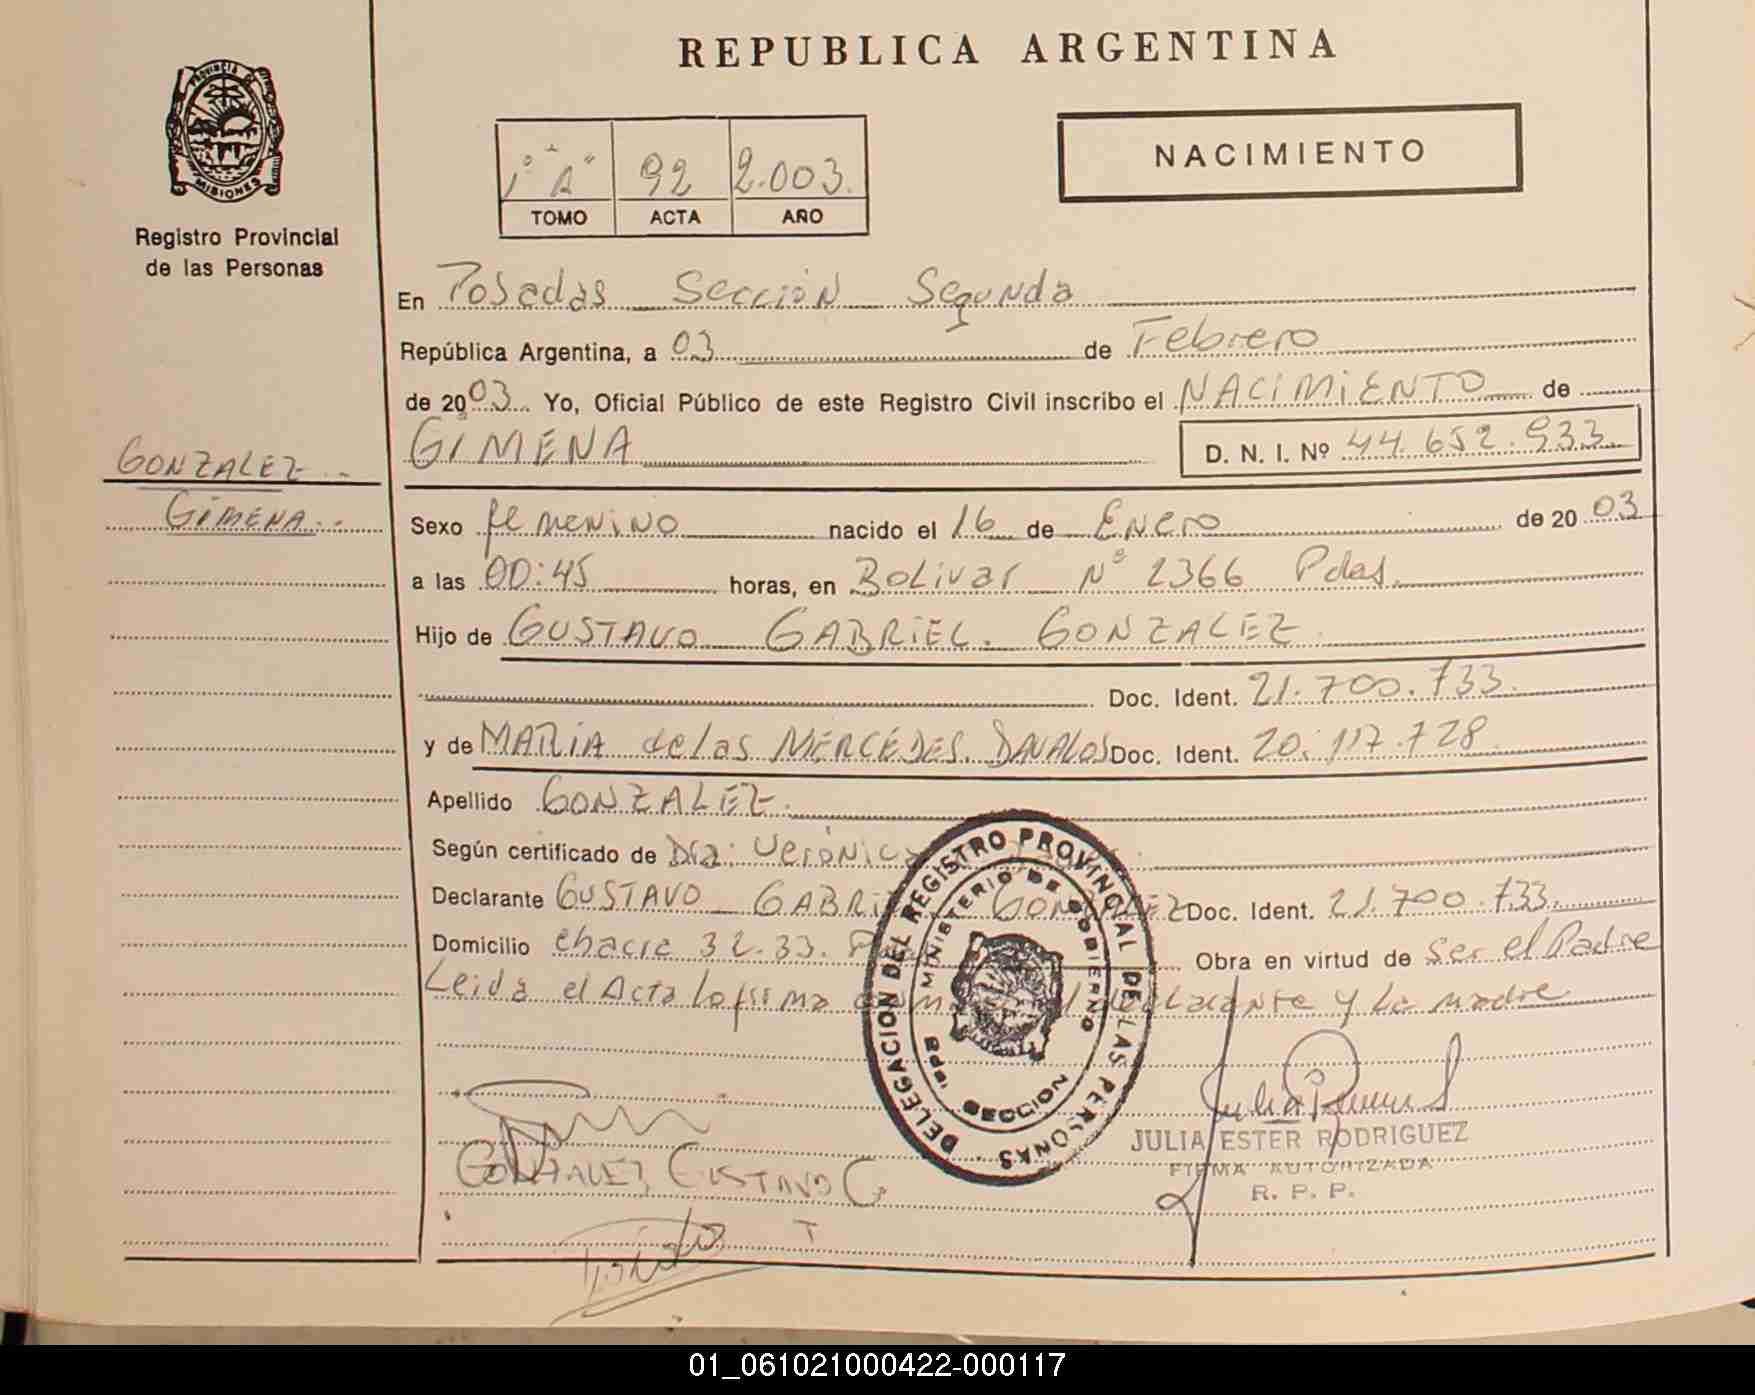 REPUBLICA ARGENTINA
PROVINCIA DE MISIONES
Registro Provincial
de las Personas
1° "A" 92 2.003.
TOMO ACTA AÑO
NACIMIENTO
En Posadas Sección Segunda
República Argentina, a 03 de Febrero
de 2003 Yo, Oficial Público de este Registro Civil inscribo el NACIMIENTO de
GONZALEZ
GIMENA
GIMENA D. N. I. Nº 44.652.933
Sexo femenino nacido el 16 de Enero de 2003
a las 00:45 horas, en Bolivar N° 2366 Pdas.
Hijo de GUSTAVO GABRIEL GONZALEZ
Doc. Ident. 21.700.733.
y de MARIA de las MERCEDES DAVALOS Doc. Ident. 20.117.728
Apellido GONZALEZ.
Según certificado de Dra: Verónica
Declarante GUSTAVO GABRIEL GONZALEZ Doc. Ident. 21.700.733.
Domicilio chacra 32.33. Obra en virtud de ser el Padre
Leida el Acta la firma el declarante y la madre
DELEGACION DEL REGISTRO PROVINCIAL DE LAS PERSONAS
MINISTERIO DE GOBIERNO
SECCION
GONZALEZ, GUSTAVO G.
JULIA ESTER RODRIGUEZ
FIRMA AUTORIZADA
R. P. P.
01_061021000422-000117